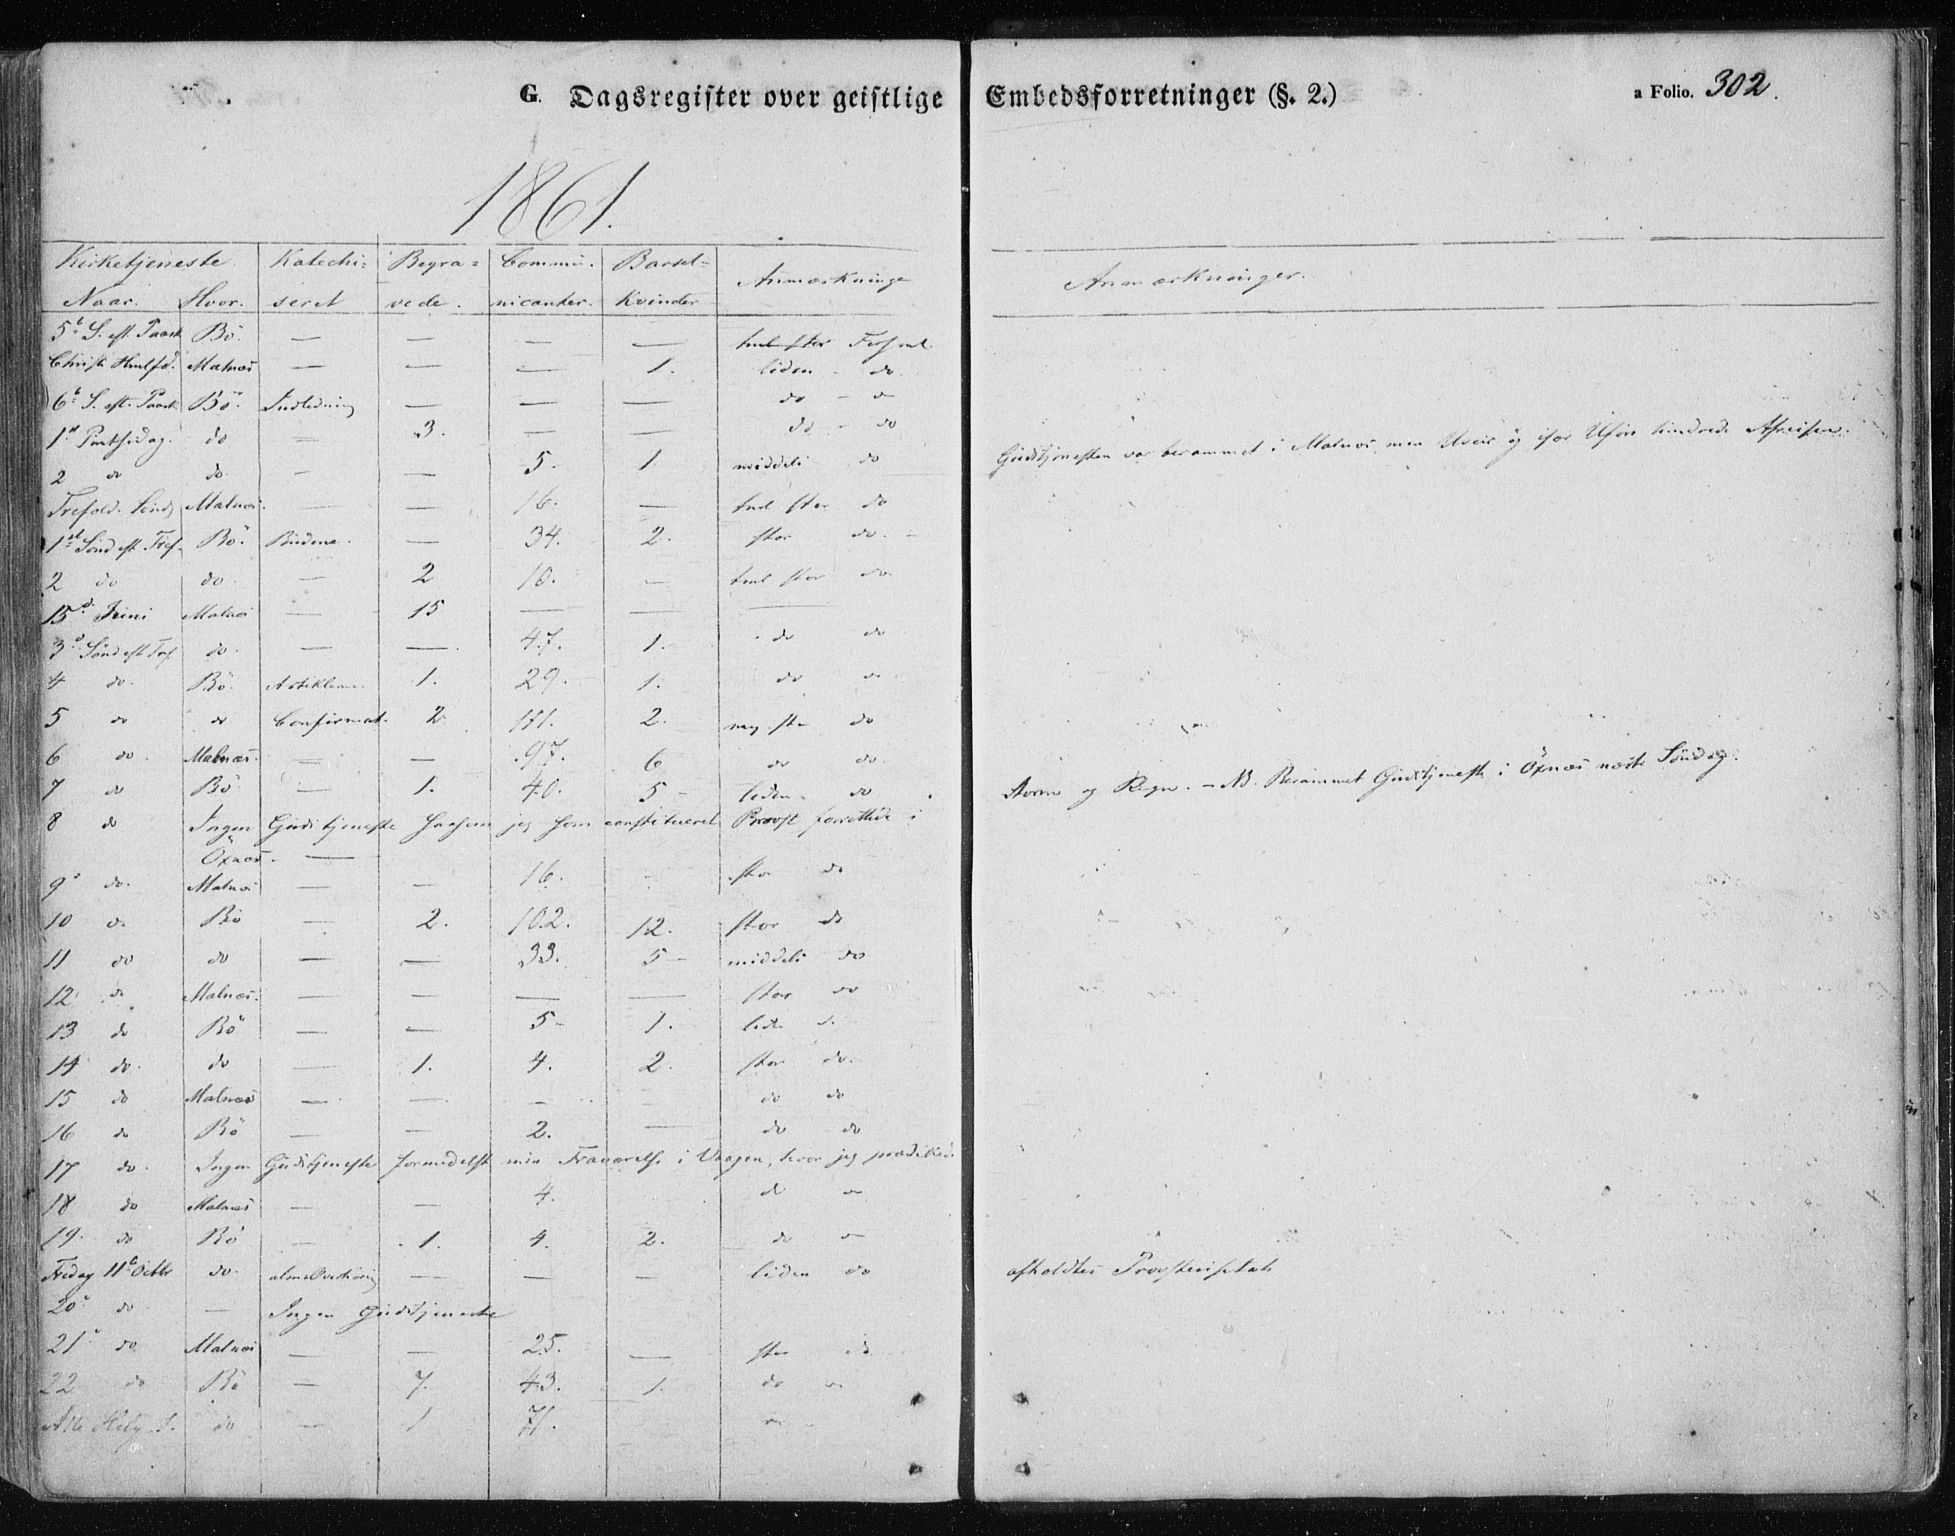 G. Dagsregister over geistlige Embedsforretninger (§. 2.) a Folio. 302.
1861.
Kirketjeneste Katechi= Begra= Commu- Barsel= Anmærkninge Anmærkninger.
Naar. Hvor. seret vede. nicanter. Kvinder
5te S. eft. Paask Bö. — — — —
Christi Hmlfd. Malnæs — — — 1. liden - do.
6te S. eft. Paask Bö. Indledning — — — do - do
1st Pintsedag. do — 3. — — do - do
2 do do — — 5. 1. middels do Gudstjenesten var berammet i Malnæs men Uveir og især Uføre hindrede Afreisen.
Trefold. Sönd Malnæs. — — 16. — do
1ste Sönd eft Tref. Bö. Budene. — 34. 2. stor do. -
2 do do. — 2 10. — stor do
15de Juni Malnæs — 15 — — —
3de Sönd eft Tref. do. — —. 47. 1. do do
4 do. Bö. Artiklerne. 1. 29. 1. do do
5 do do Confirmat. 2 171. 2. meg. stor do
6 do. Malnæs. — — 97. 6 do do.
7 do Bö — 1. 40. 5 - liden. do Storm og Regn. - NB. Berammet Gudstjeneste i Öxnæs næste Söndag.
8 do Ingen Gudstjeneste saasom jeg som constitueret Provst forrettede i
Öxnæs. —
9de do. Malnæs — — 16. stor do
10 do Bö — 2. 102. 12. stor do
11 do do — — 33. 5 - middels do
12 do Malnæs. — — — — stor do
13 do Bö — — 5 - 1. liden do
14 do. do — 1. 4. 2. stor do.
15 do Malnæs — — - do do
16 do Bö — — 2. — do do
17 do. Ingen Gudstjeneste formedelst min Fraværelse i Vaagen, hvor jeg prædiked.
18 do Malnæs — — 4. do do
19. do Bö — 1. 4. 2. do do
Fredag 11te Octbr do. — — — liden do afholdtes Provstevisitats
20de do — Ingen Gudstjeneste
21de do Malnæs — — 25. — stor do
22 do Bö — 7. 43. 1. do do
Alle Helg. S. do — 1 71. do